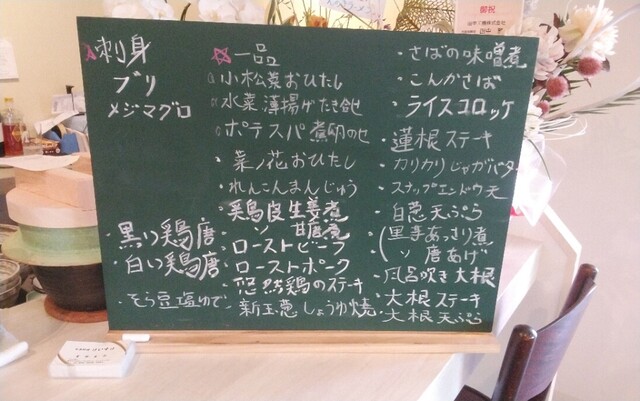 刺身
ブリ
メジマグロ
黒い鶏唐
白い鶏唐
・そら豆塩ゆで
☆一品
小松菜おひたし
水菜薄揚げたき合せ
ポテスパ煮卵のせ
・菜ノ花おひたし
・れんこんまんじゅう
・鶏皮生姜煮
〃 甘露煮
・ローストビーフ
・ローストポーク
・悠然鶏のステーキ
・新玉葱しょうゆ焼
・さばの味噌煮
・こんかさば
・ライスコロッケ
・蓮根ステーキ
・カリカリじゃがバター
・スナップエンドウ天
・白葱天ぷら
・里芋あっさり煮
〃 唐あげ
・風呂吹き大根
・大根ステーキ
・大根天ぷら
開祝